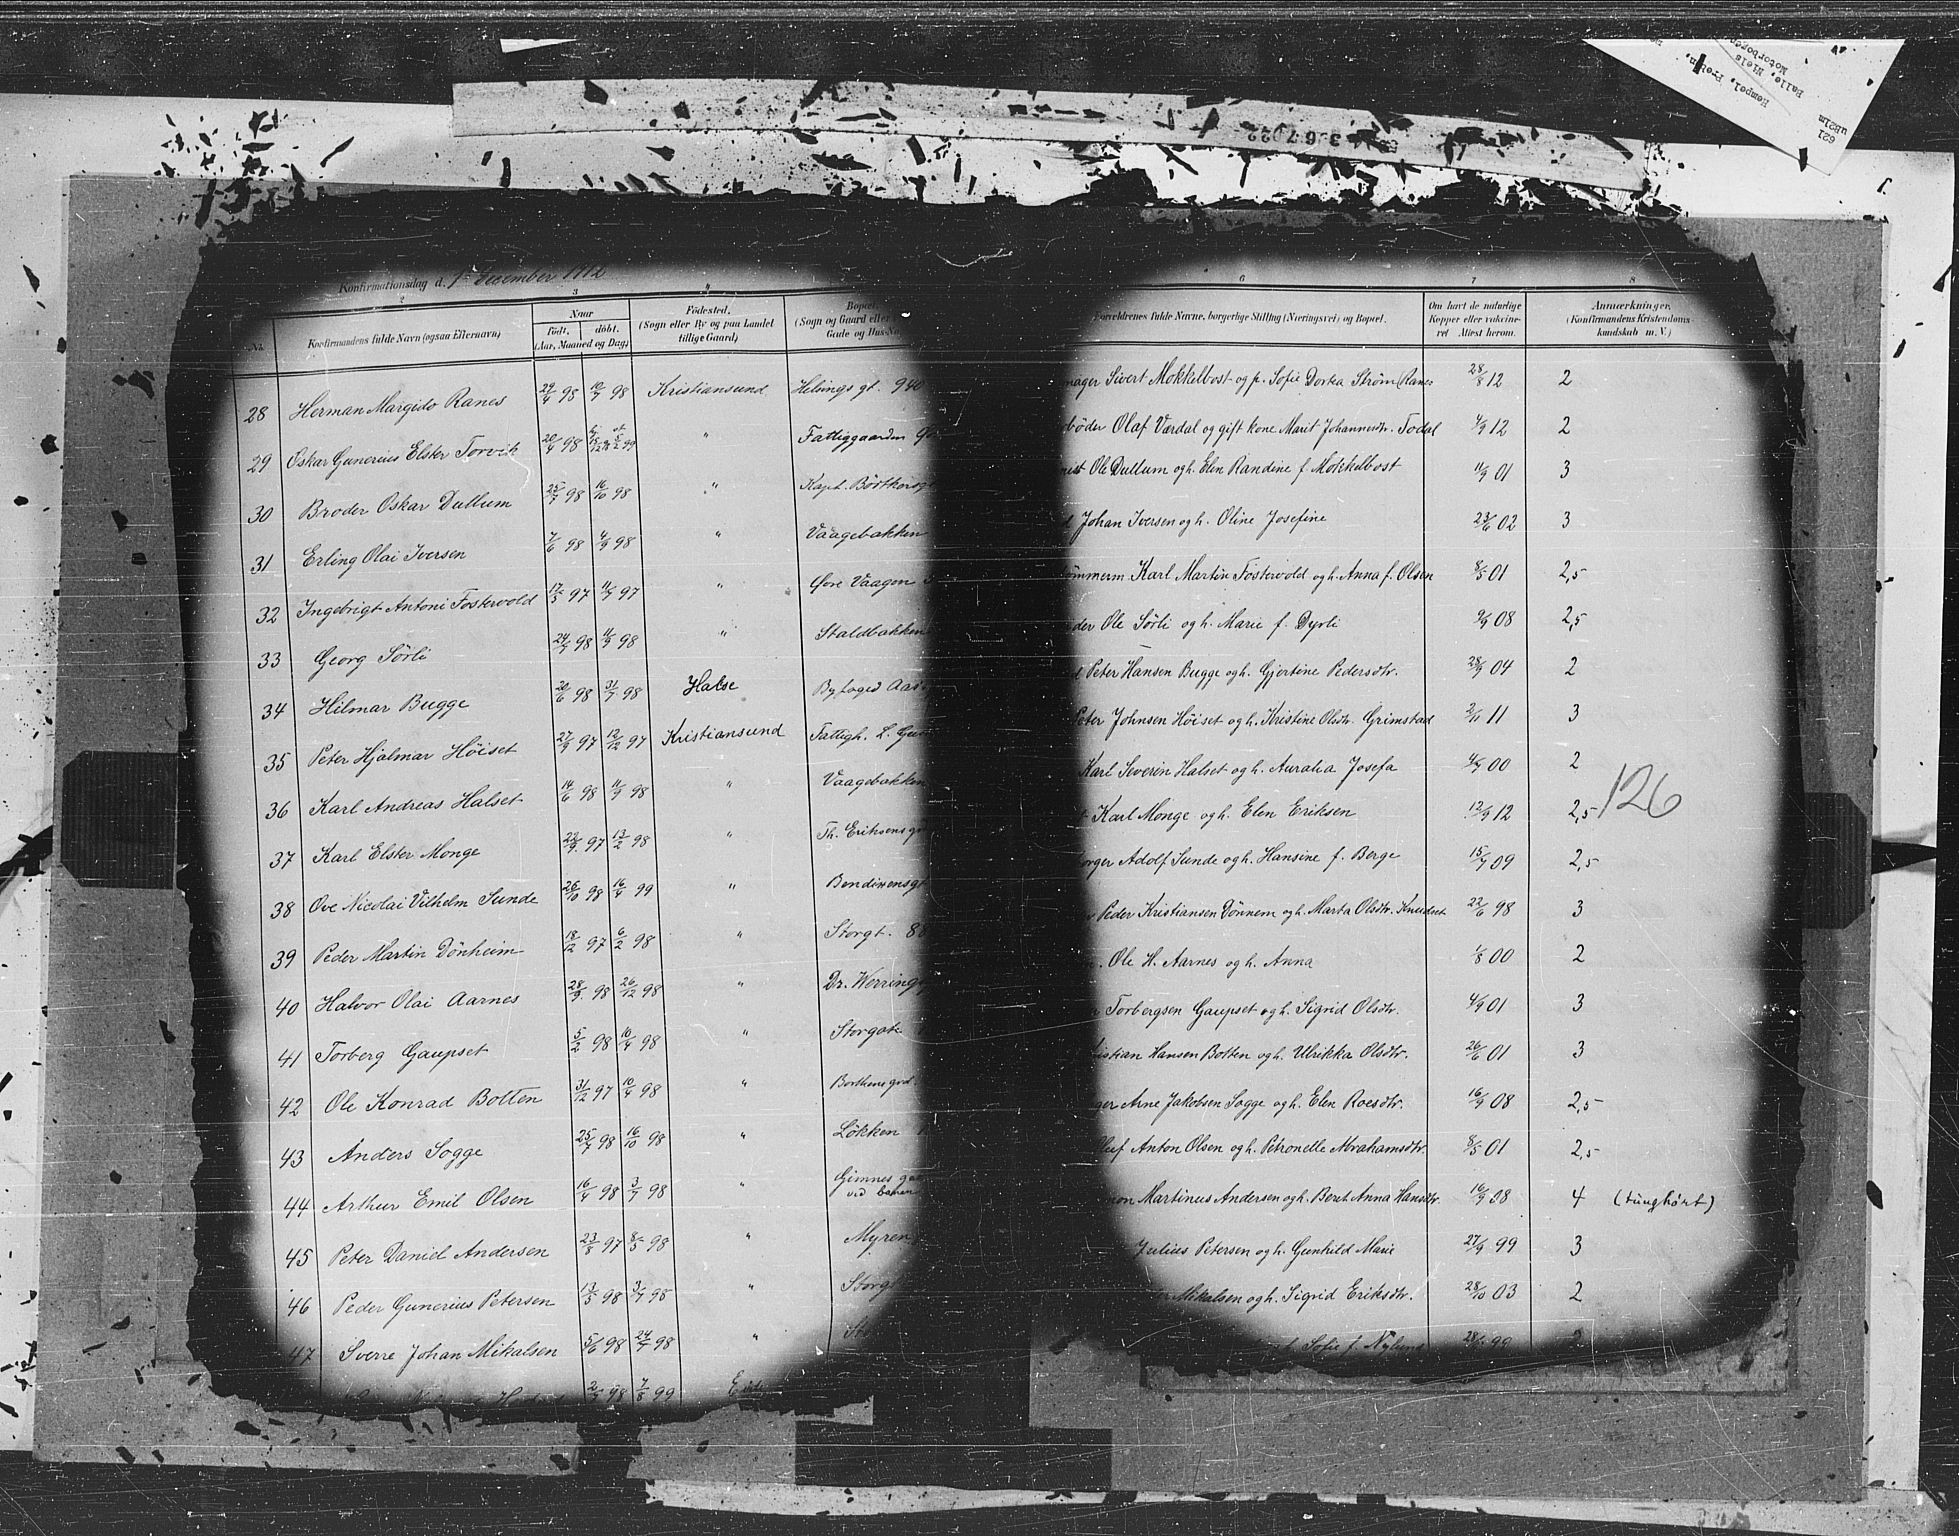 Konfirmationsdag d. 1ste December 1912
2 3 4
No. Konfirmandens fulde Navn (ogsaa Efternavn) Naar født, døbt. (Aar, Maaned og Dag) Fødested. (Sogn eller By og paa Landet tillige Gaard) Bopæl (Sogn og Gaard eller Gade og Hus-No.
28 Herman Margido Ranes 29/4 98 10/7 98 Kristiansund Helsings gt. 940
29 Oskar Gunerius Elster Torvik 20/4 98 " Fattiggaarden
30 Broder Oskar Dullum 25/7 98 16/10 98 " Kapt. Böstkorsg
31 Erling Olai Iversen 7/6 98 4/9 98 " Vaagebakken
32 Ingebrigt Antoni Fostervold 17/5 97 11/7 97 " Øvre Vaagen
33 Georg Sörli 24/7 98 11/9 98 " Staldbakken
34 Hilmar Bugge 20/6 98 31/7 98 Halse Byfoged Aas
35 Peter Hjalmar Höiset 27/9 97 12/12 97 Kristiansund Fattigh. L.
36 Karl Andreas Halset 14/6 98 11/9 98 " Vaagebakken
37 Karl Elster Monge 22/9 97 13/2 98 " Th. Eriksens gd
38 Ove Nicolai Vilhelm Sunde 26/10 98 16/4 99 " Bendixensgt
39 Peder Martin Dönheim 18/12 97 6/2 98 " Storgt. 88
40 Halvor Olai Aarnes 28/9 98 26/12 98 " Dr. Werring
41 Torberg Gaupset 5/2 98 16/4 98 " Storgate
42 Ole Konrad Botten 31/12 97 10/4 98 " Borthens gd.
43 Anders Sogge 25/7 98 16/10 98 " Lökken
44 Arthur Emil Olsen 16/4 98 3/7 98 " Gimnes ga
45 Peter Daniel Andersen 23/8 97 8/5 98 " Myren
46 Peder Gunerius Petersen 13/5 98 3/7 98 " Storgt
47 Sverre Johan Mikalsen 5/6 98 24/7 98 "
2/7 98 7/8 99
6 7 8
Forældrenes fulde Navne, borgerlige Stilling (Næringsvei) og Bopæl. Om havt de naturlige Kopper eller vaccineret Attest herom. Anmærkninger. (Konfirmandens Kristendomskundskab m. V.)
mager Sivert Mokkelbost og p. Sofie Dortea Ström (Ranes 28/8 12 2
böder Olaf Værdal og gift kone Marit Johannesdtr. Todal 4/9 12 2
Ole Dullum og h. Elen Randine f. Mokkelbost 11/9 01 3
Johan Iversen og h. Oline Josefine 23/6 02 3
ömmerm Karl Martin Fostervold og h. Anna f. Olsen 8/5 01 2,5
der Ole Sörli og h. Marie f. Dyrli 9/9 08 2,5
Peter Hansen Bugge og h. Gjertine Pedersdtr. 28/9 04 2
Peter Johnsen Höiset og h. Kristine Olsdtr. Grimstad 2/11 11 3
Karl Severin Halset og h. Auralia Josefa 4/7 00 2
Karl Monge og h. Elen Eriksen 12/9 12 2,5
126
orger Adolf Sunde og h. Hansine f. Berge 15/7 09 2,5
Peder Kristiansen Dönnem og h. Marta Olsdtr. Knudset 22/6 98 3
Ole H. Aarnes og h. Anna 1/8 00 2
Torbergsen Gaupset og h. Sigrid Olsdtr. 4/9 01 3
istian Hansen Botten og h. Ulrikka Olsdtr. 26/6 01 3
ger Arne Jakobsen Sogge og h. Elen Roesdtr. 16/9 08 2,5
Oluf Anton Olsen og h. Petronelle Abrahamsdtr. 8/5 01 2,5
mon Martinus Andersen og h. Beret Anna Hansdtr. 16/9 08 4 (tunghørt)
Julius Petersen og h. Gunhild Marie 27/9 99 3
Mikalsen og h. Sigrid Eriksdtr. 28/10 03 2
Sofie f. Nylund 99 2